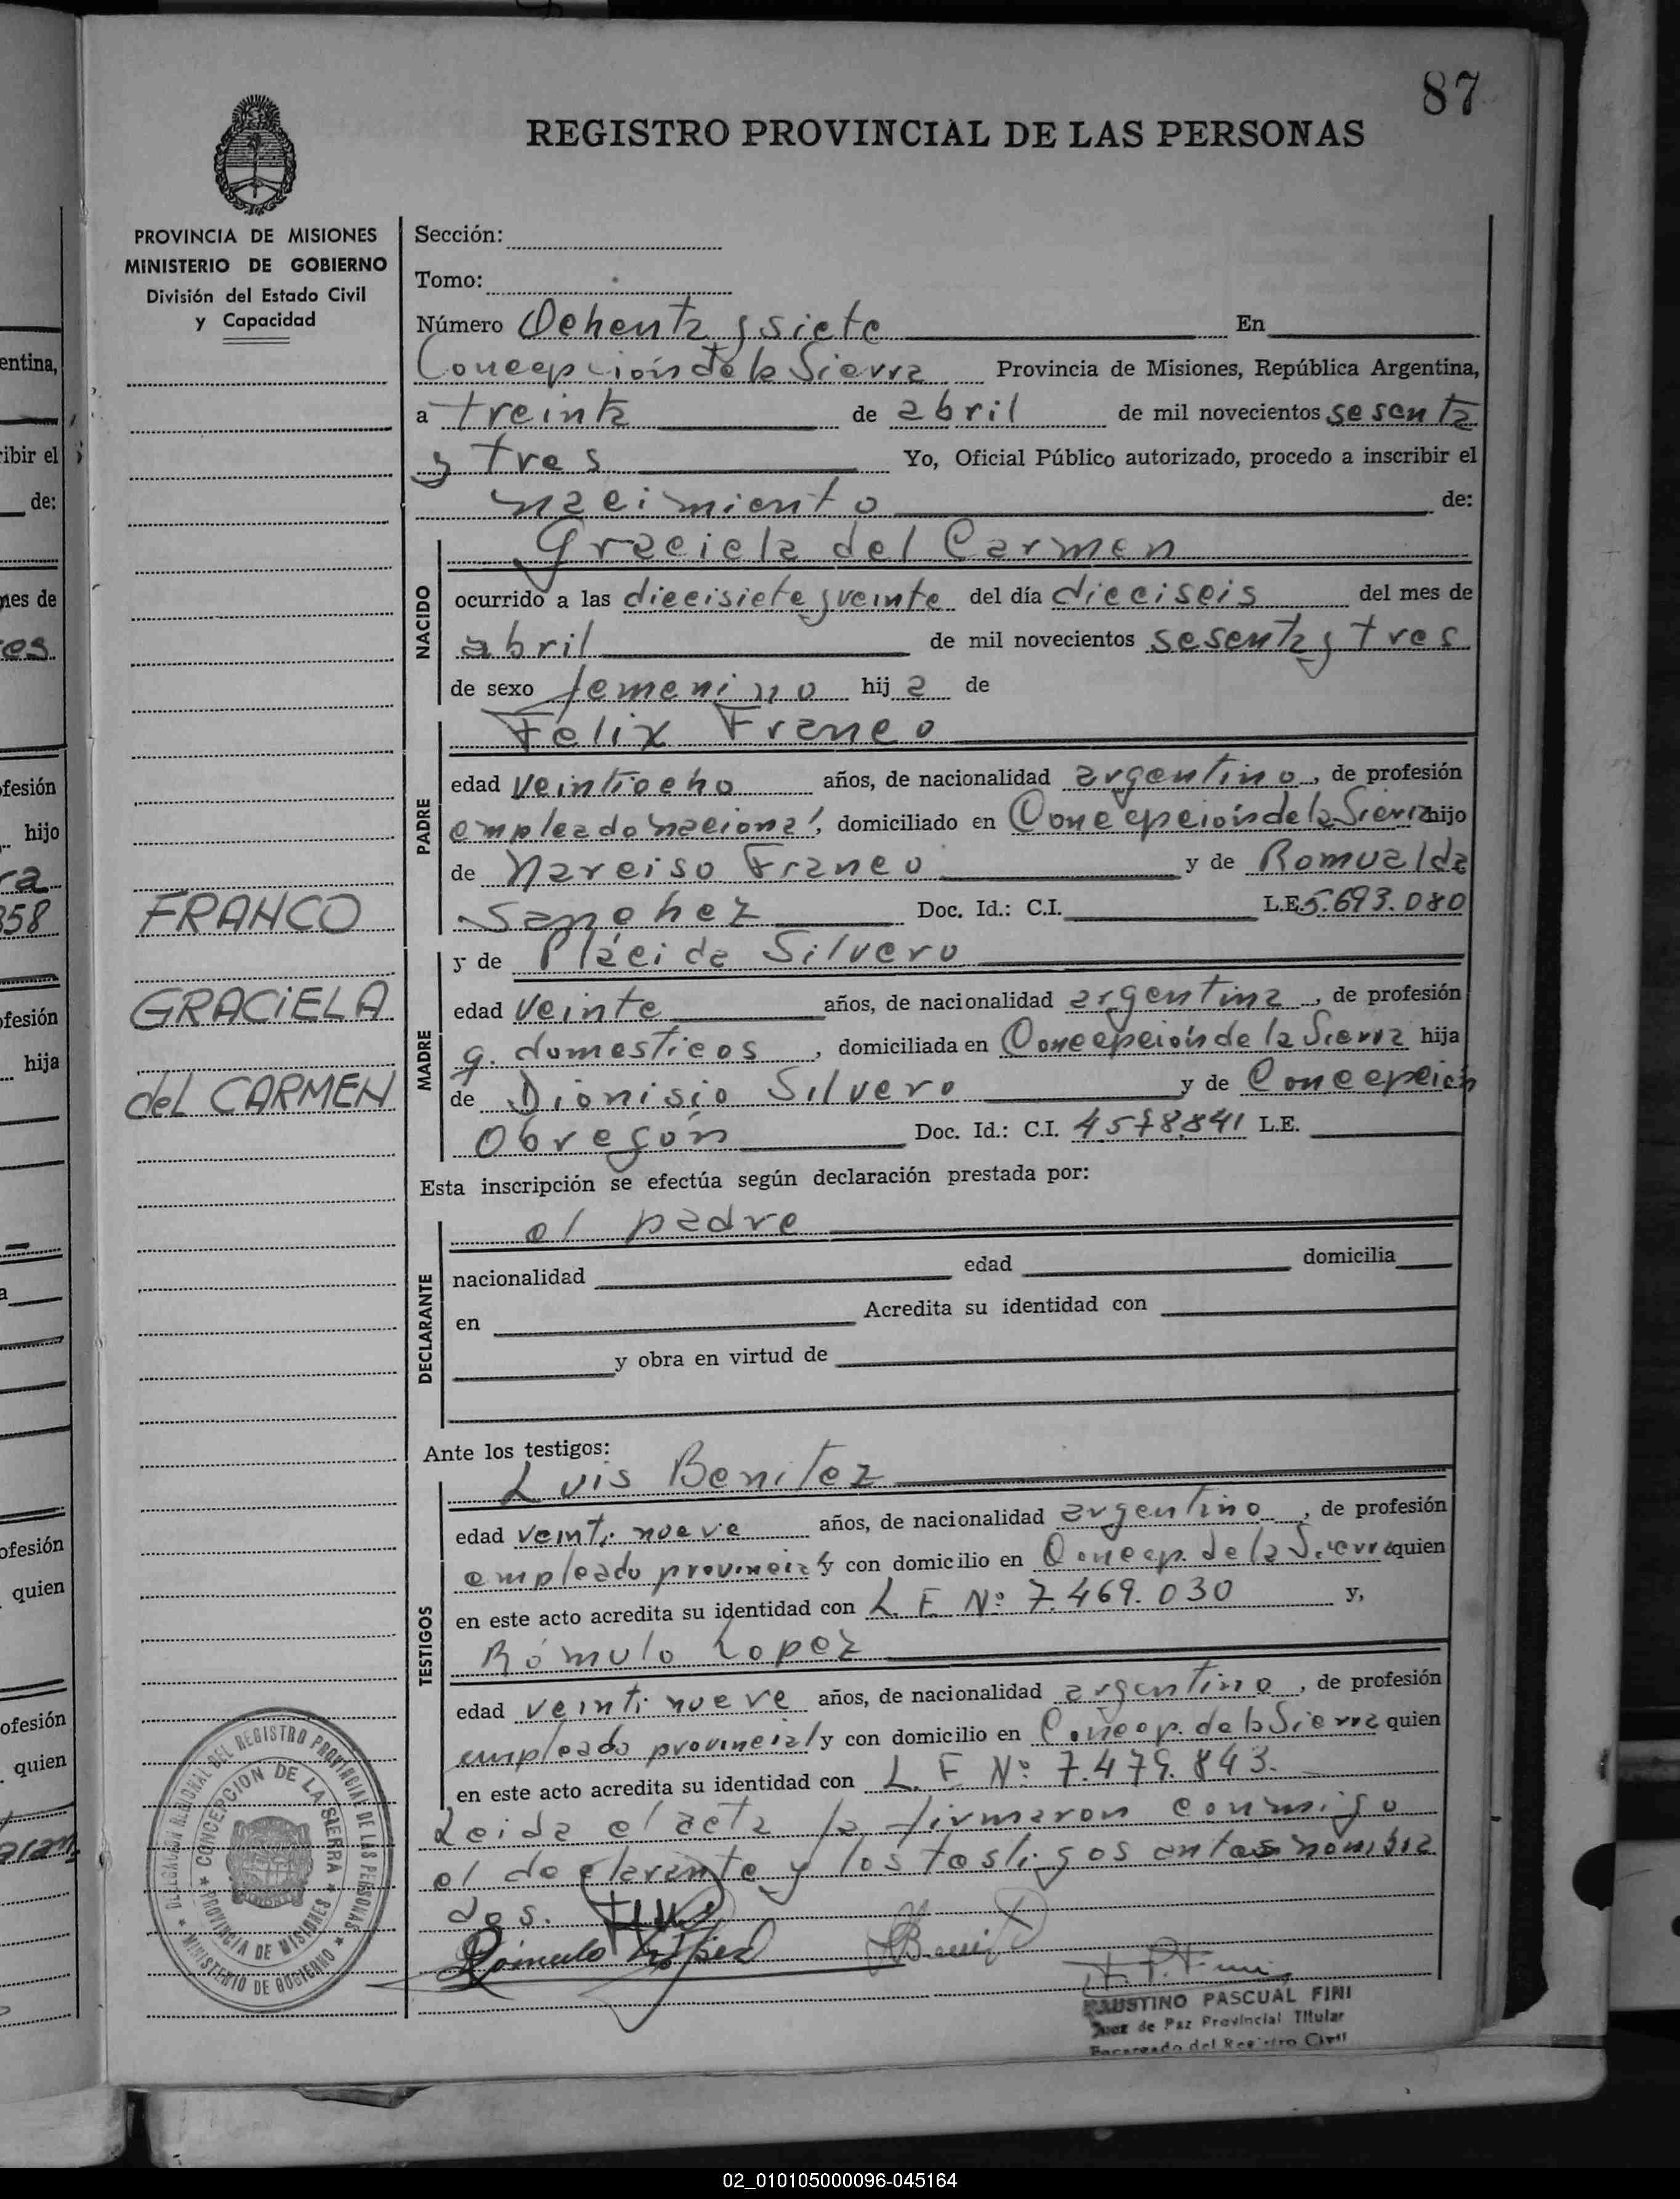 87
REGISTRO PROVINCIAL DE LAS PERSONAS
PROVINCIA DE MISIONES
MINISTERIO DE GOBIERNO
División del Estado Civil
y Capacidad
FRANCO
GRACIELA
del CARMEN
Sección:
Tomo:
Número Ochenta y siete En
Concepción de la Sierra Provincia de Misiones, República Argentina,
a treinta de abril de mil novecientos sesenta
y tres Yo, Oficial Público autorizado, procedo a inscribir el
nacimiento de:
NACIDO
Graciela del Carmen
ocurrido a las diecisiete y veinte del día dieciseis del mes de
abril de mil novecientos sesenta y tres
de sexo femenino hij a de
PADRE
Félix Franco
edad veintiocho años, de nacionalidad argentino, de profesión
empleado nacional, domiciliado en Concepción de la Sierra hijo
de Narciso Franco y de Romualda
Sanchez Doc. Id.: C.I. L.E. 5.693.080
MADRE
y de Plácida Silvero
edad veinte años, de nacionalidad argentina, de profesión
q. domesticos, domiciliada en Concepción de la Sierra hija
de Dionisio Silvero y de Concepción
Obregón Doc. Id.: C.I. 4.578.841 L.E.
Esta inscripción se efectúa según declaración prestada por:
DECLARANTE
el padre
nacionalidad edad domicilia
en Acredita su identidad con
y obra en virtud de
Ante los testigos:
TESTIGOS
Luis Benitez
edad veinti nueve años, de nacionalidad argentino, de profesión
empleado provincial y con domicilio en Concep. de la Sierra quien
en este acto acredita su identidad con L. E. Nº 7.469.030 y,
Rómulo Lopez
edad veinti nueve años, de nacionalidad argentino, de profesión
empleado provincial y con domicilio en Concep. de la Sierra quien
en este acto acredita su identidad con L. E Nº 7.479.843.
Leida el acta la firmaron conmigo
el declarante y los testigos antes nombra
dos.
Rómulo López
DELEGACION REGIONAL DEL REGISTRO PROVINCIAL DE LAS PERSONAS
MINISTERIO DE GOBIERNO
CONCEPCION DE LA SIERRA
PROVINCIA DE MISIONES
FAUSTINO PASCUAL FINI
Juez de Paz Provincial Titular
Encargado del Registro Civil
entina,
ribir el
de:
mes de
res
ofesión
hijo
ra
358
ofesión
hija
a
ofesión
quien
ofesión
quien
02_010105000096-045164